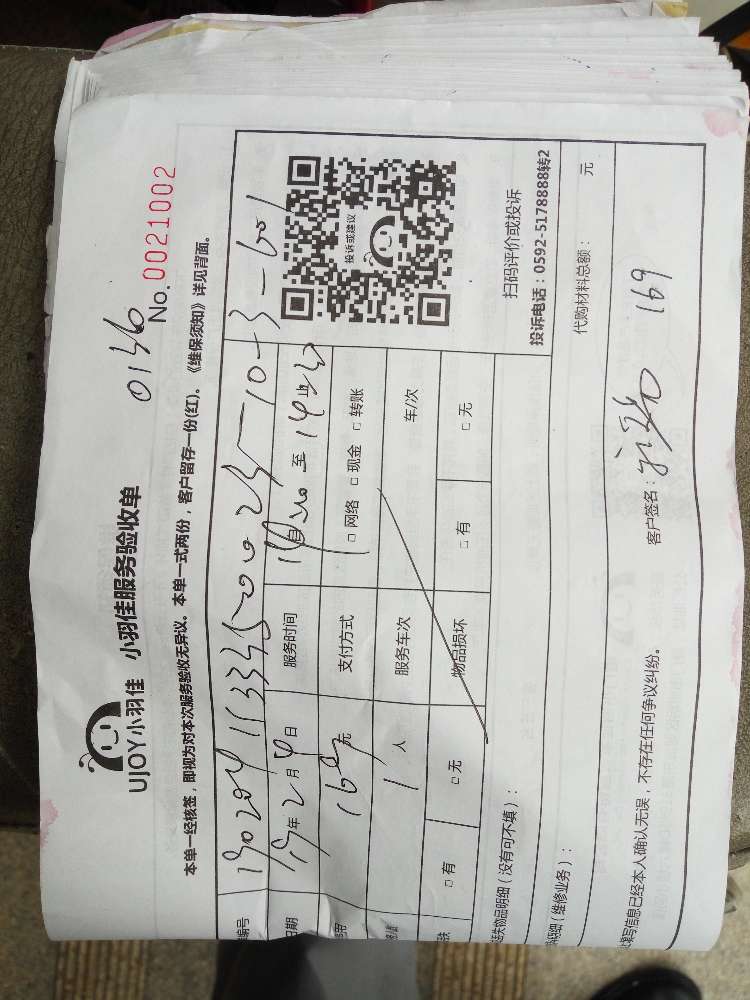 UJOY小羽佳 小羽佳服务验收单
0136
No. 0021002
本单一经核签，即视为对本次服务验收无异议。本单一式两份，客户留存一份(红)。《维保须知》详见背面。
编号
日期 19年2月4日 服务时间 至
169元 支付方式 □ 网络 □ 现金 □ 转账
1人 服务车次 车/次
□ 有 □ 无 物品损坏 □ 有 □ 无
投诉或建议
扫码评价或投诉
投诉电话：0592-5178888转2
遗失物品明细（没有可不填）：
明细（维修业务）： 代购材料总额： 元
填写信息已经本人确认无误，不存在任何争议纠纷。 客户签名： 169